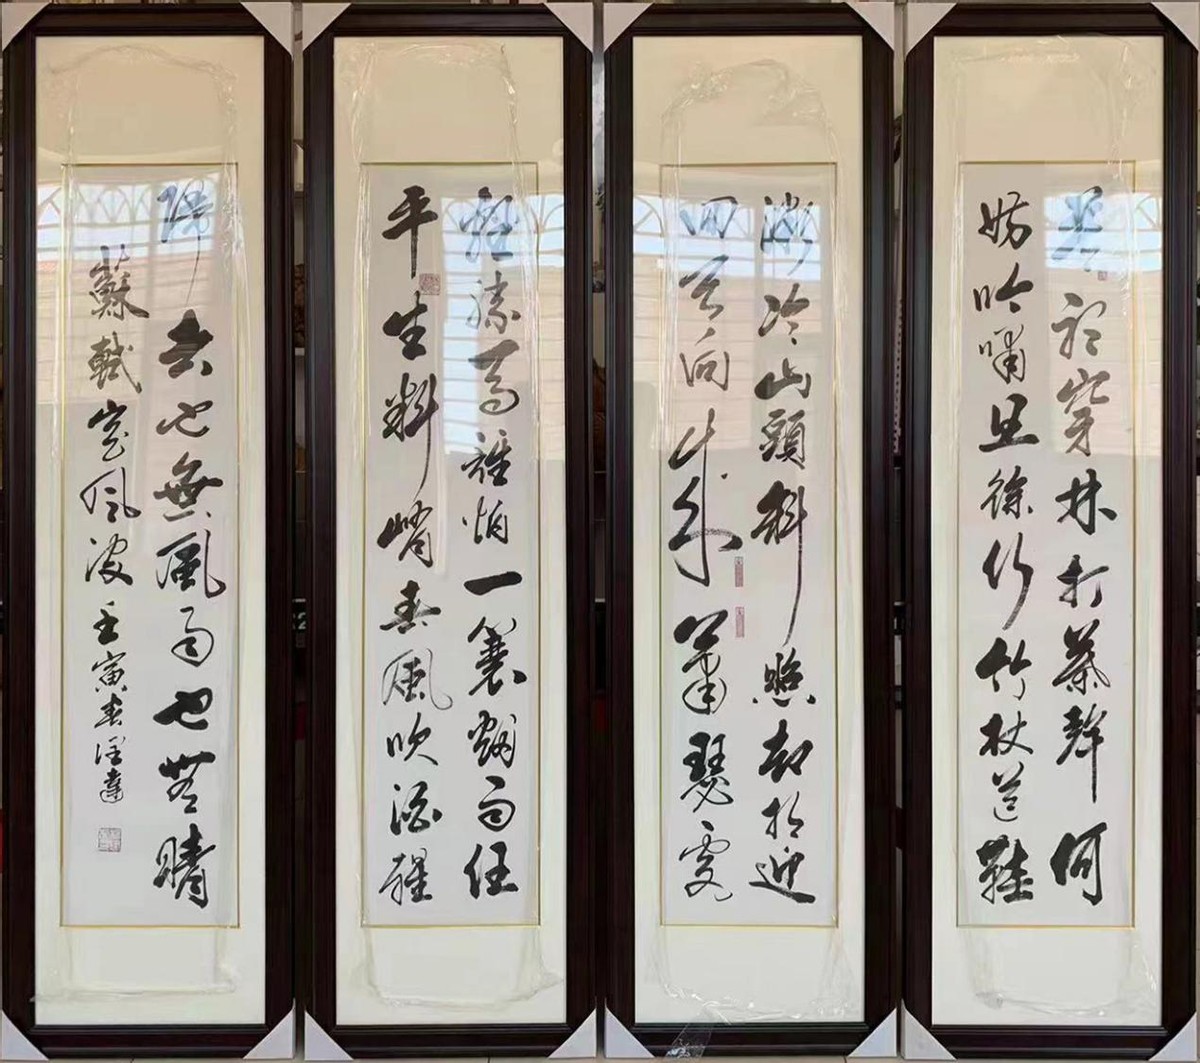 莫聽穿林打葉聲何
妨吟嘯且徐行竹杖芒鞋
微冷山頭斜照却相迎
回首向来蕭瑟處
輕勝馬誰怕一蓑烟雨任
平生料峭春風吹酒醒
歸去也無風雨也無晴
蘇軾定風波壬寅春達